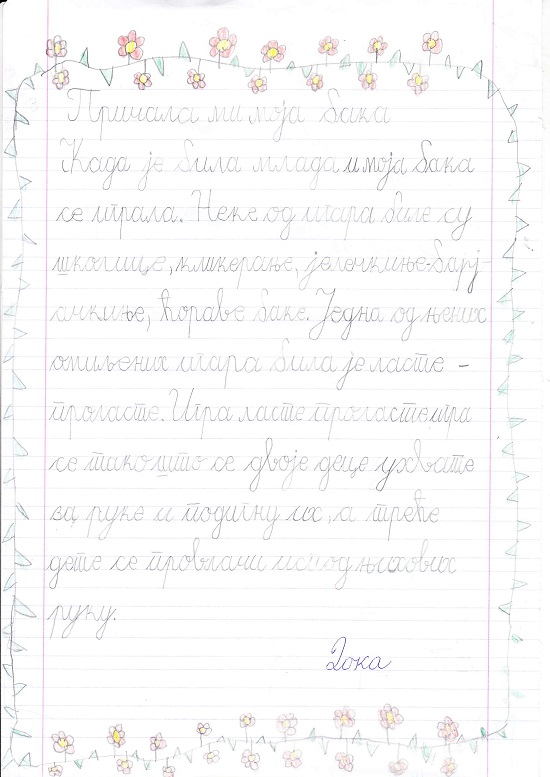 Причала ми моја бака
Када је била млада и моја бака
се играла. Неке од игара биле су
школице, кликерање, јелечкиње-барј-
ачкиње, ћораве баке. Једна од њених
омиљених игара била је ласте -
проласте. Игра ласте проласте игра
се тако што се двоје деце ухвате
за руке и подигну их, а треће
дете се провлачи испод њихових
руку.